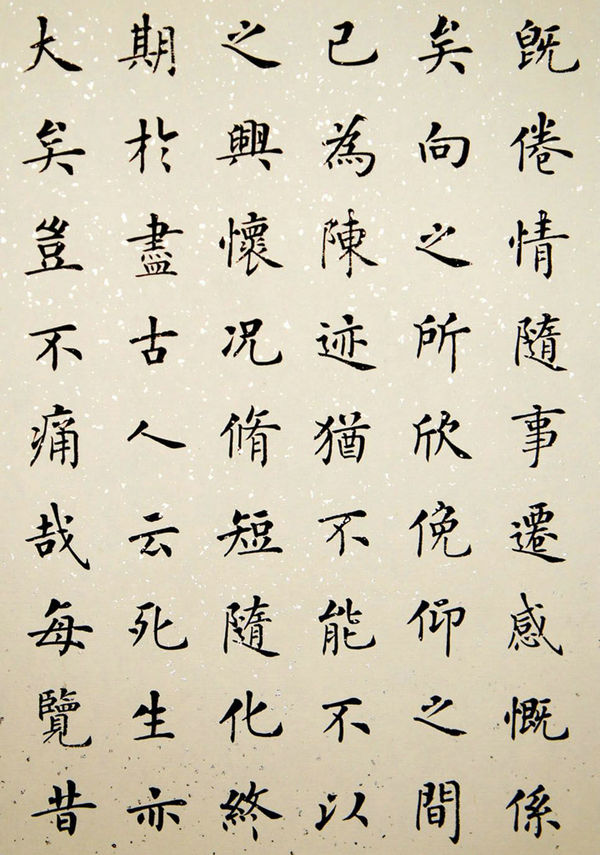 既倦情隨事遷感慨係
矣向之所欣俛仰之間
已為陳迹猶不能不以
之興懷况脩短隨化終
期於盡古人云死生亦
大矣豈不痛哉每覽昔